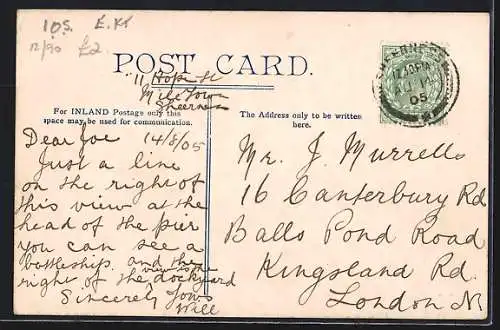 10S. E. Kt
12/90 £2
POST CARD.
11 Hope St
Mile Town
Sheerness
For INLAND Postage only this
space may be used for communication.
The Address only to be written
here.
14/8/05
Dear Joe
Just a line
on the right of
this view at the
head of the pier
you can see a
battleship. and the
view is the
right of the dockyard
Sincerely Yours
Will
Mr. J. Murrells
16 Canterbury Rd
Balls Pond Road
Kingsland Rd.
London N
SHEERNESS
12.30PM
AU 14
05